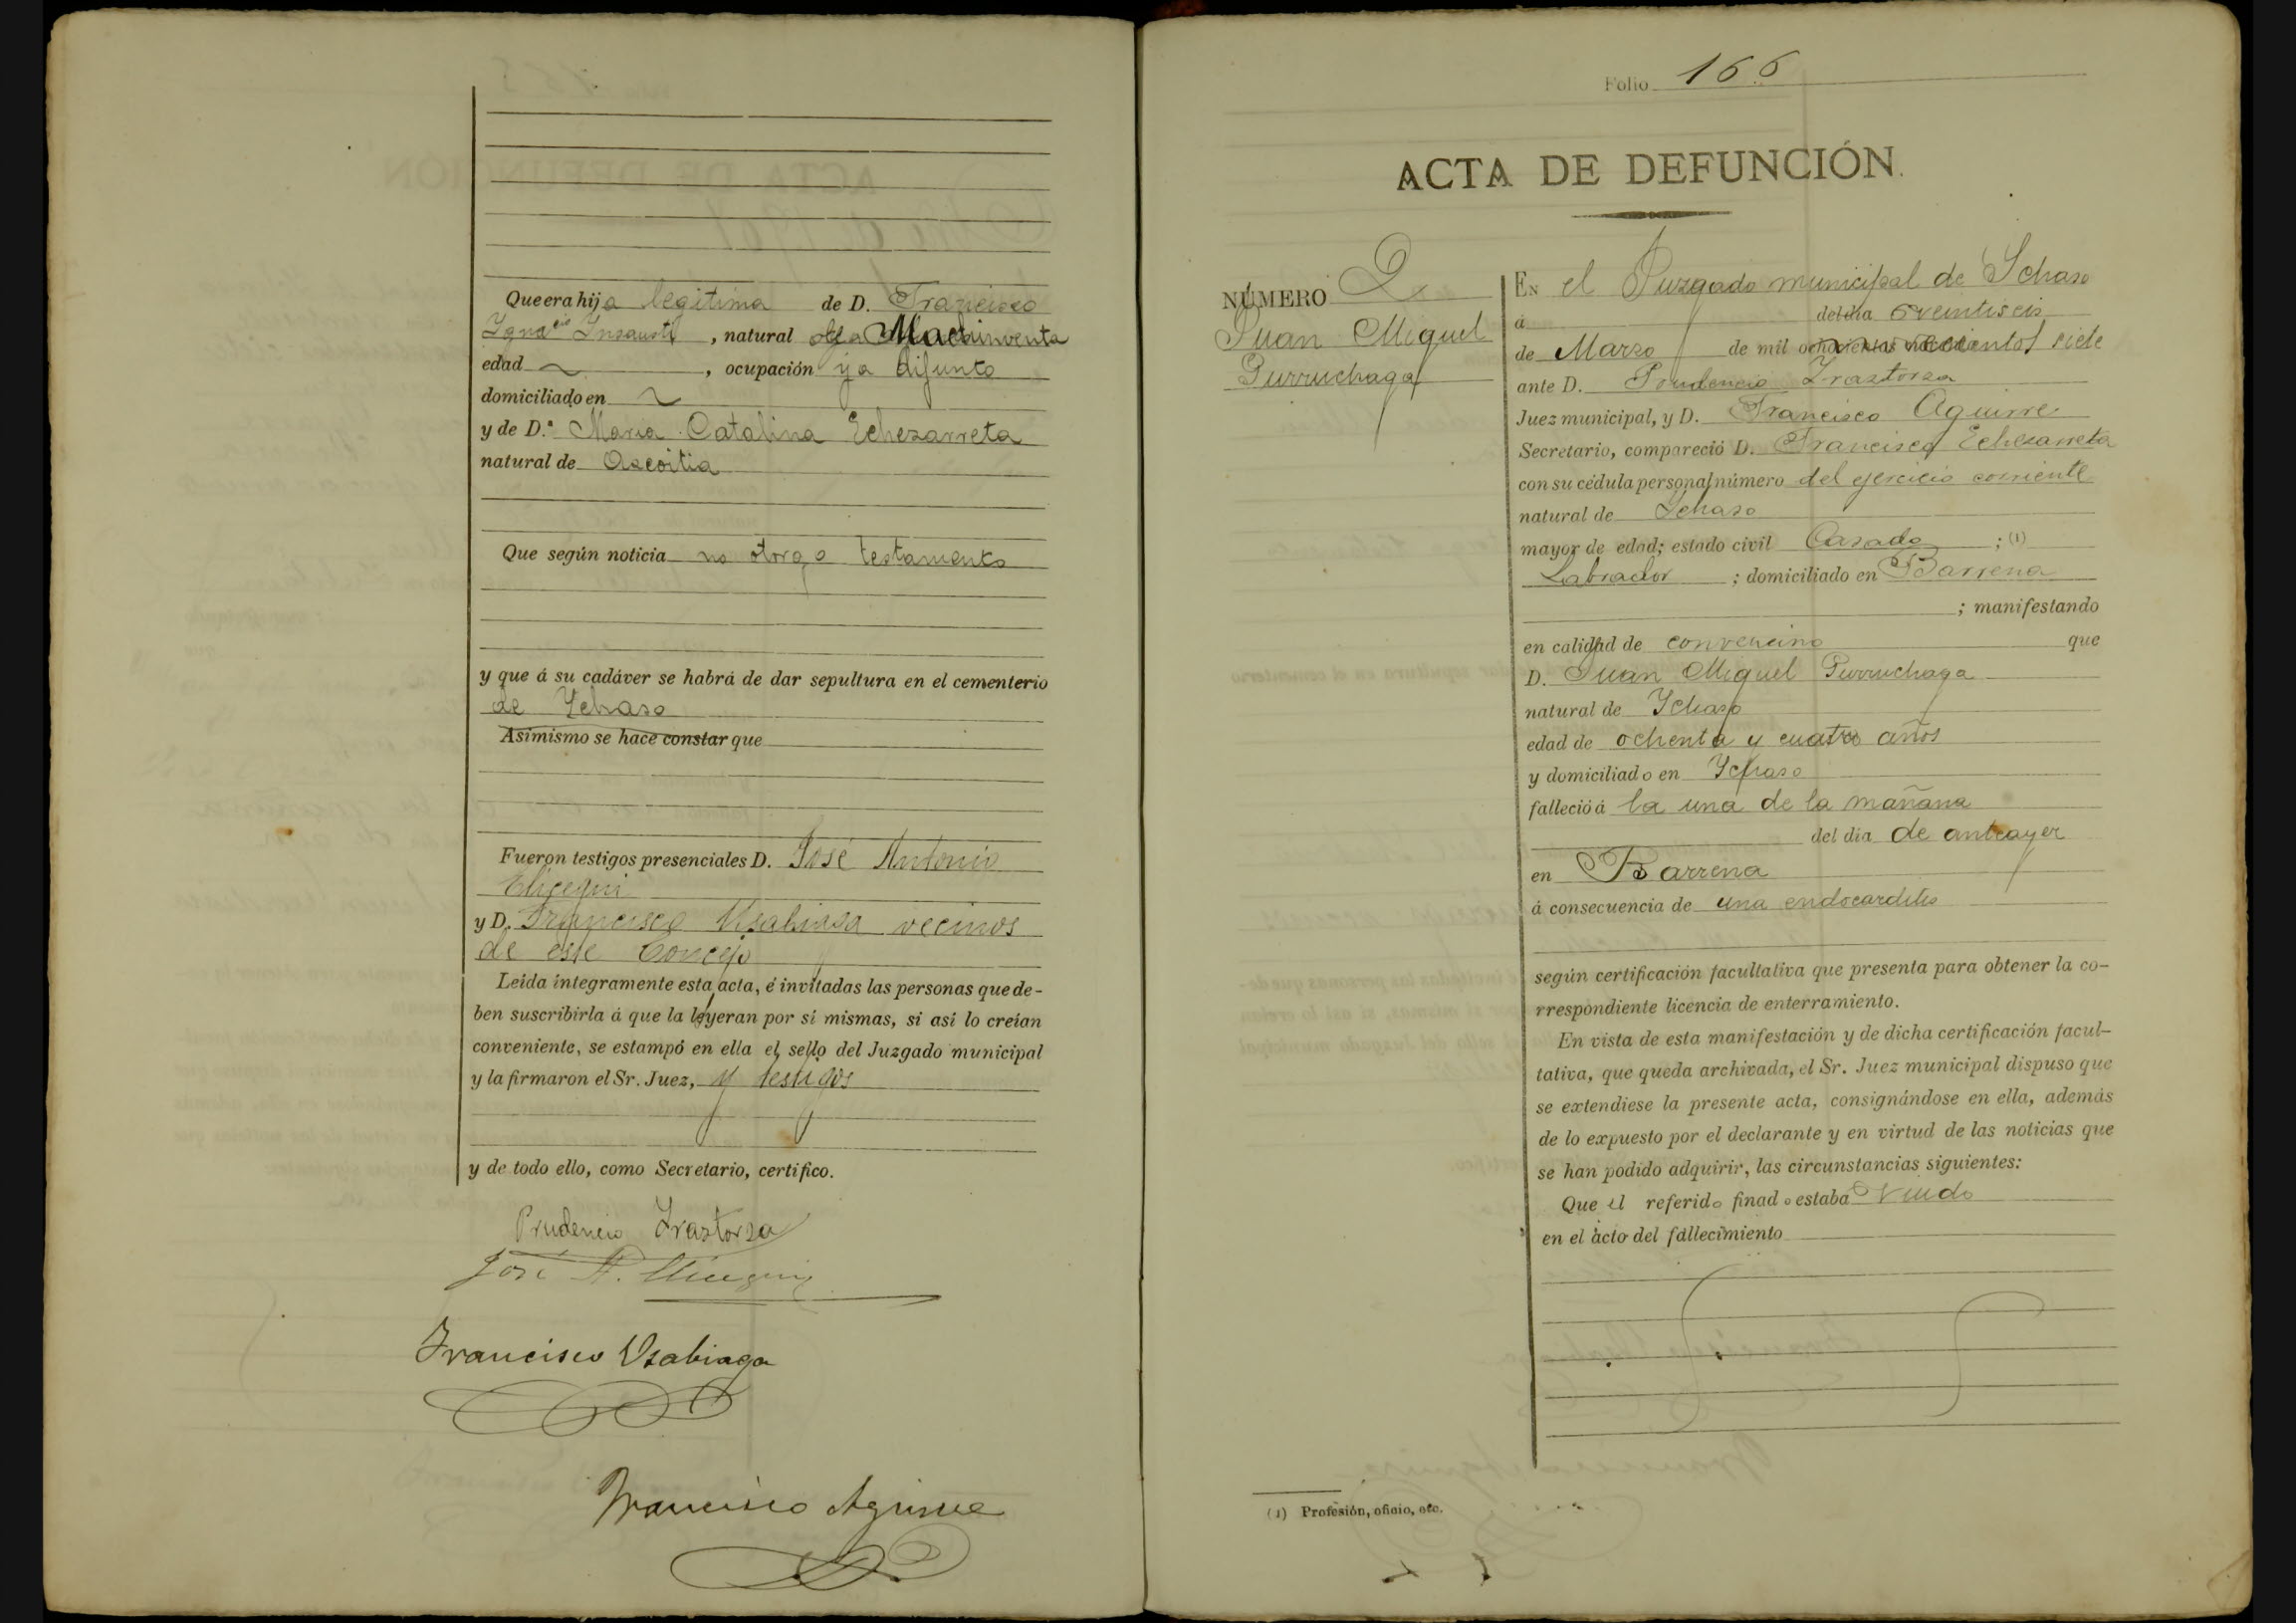 Que era hija legitima de D. Francisco
Ignacio Insausti, natural de Machinventa
edad ~, ocupación ya difunto
domiciliado en ~
y de D.ª Maria Catalina Echezarreta
natural de Ascoitia
Que según noticia no otorgo testamento
y que á su cadáver se habrá de dar sepultura en el cementerio
de Ychaso
Asimismo se hace constar que
Fueron testigos presenciales D. José Antonio
Elicegui
y D. Francisco Usabiaga vecinos
de este Concejo
Leída íntegramente esta acta, é invitadas las personas que de-
ben suscribirla á que la leyeran por sí mismas, si así lo creían
conveniente, se estampó en ella el sello del Juzgado municipal
y la firmaron el Sr. Juez, y testigos
y de todo ello, como Secretario, certifico.
Prudencio Irastorza
José A. Elicegui
Francisco Usabiaga
Francisco Aguirre
Folio 166
ACTA DE DEFUNCIÓN.
NÚMERO 2
Juan Miguel
Yurruchaga
EN el Juzgado municipal de Ichaso
á del dia veintiseis
de Marzo de mil ochocientos novecientos siete
ante D. Prudencio Irastorza
Juez municipal, y D. Francisco Aguirre
Secretario, compareció D. Francisco Echezarreta
con su cédula personal número del ejercicio corriente
natural de Ichaso
mayor de edad; estado civil Casado ; (1)
Labrador ; domiciliado en Barrena
; manifestando
en calidad de convencino que
D. Juan Miguel Yurruchaga
natural de Ychaso
edad de ochenta y cuatro años
y domiciliado en Ychaso
falleció á la una de la mañana
del dia de anteayer
en Barrena
á consecuencia de una endocarditis
según certificación facultativa que presenta para obtener la co-
rrespondiente licencia de enterramiento.
En vista de esta manifestación y de dicha certificación facul-
tativa, que queda archivada, el Sr. Juez municipal dispuso que
se extendiese la presente acta, consignándose en ella, además
de lo expuesto por el declarante y en virtud de las noticias que
se han podido adquirir, las circunstancias siguientes:
Que el referido finado estaba Viudo
en el acto del fallecimiento
(1) Profesión, oficio, etc.